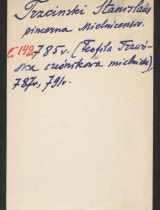 Trzciński Stanisław
pincerna Mielnicensis.
142, 785v. (Teofila Trzciń-
ska cześnikowa mielnicka)
787v, 791v.